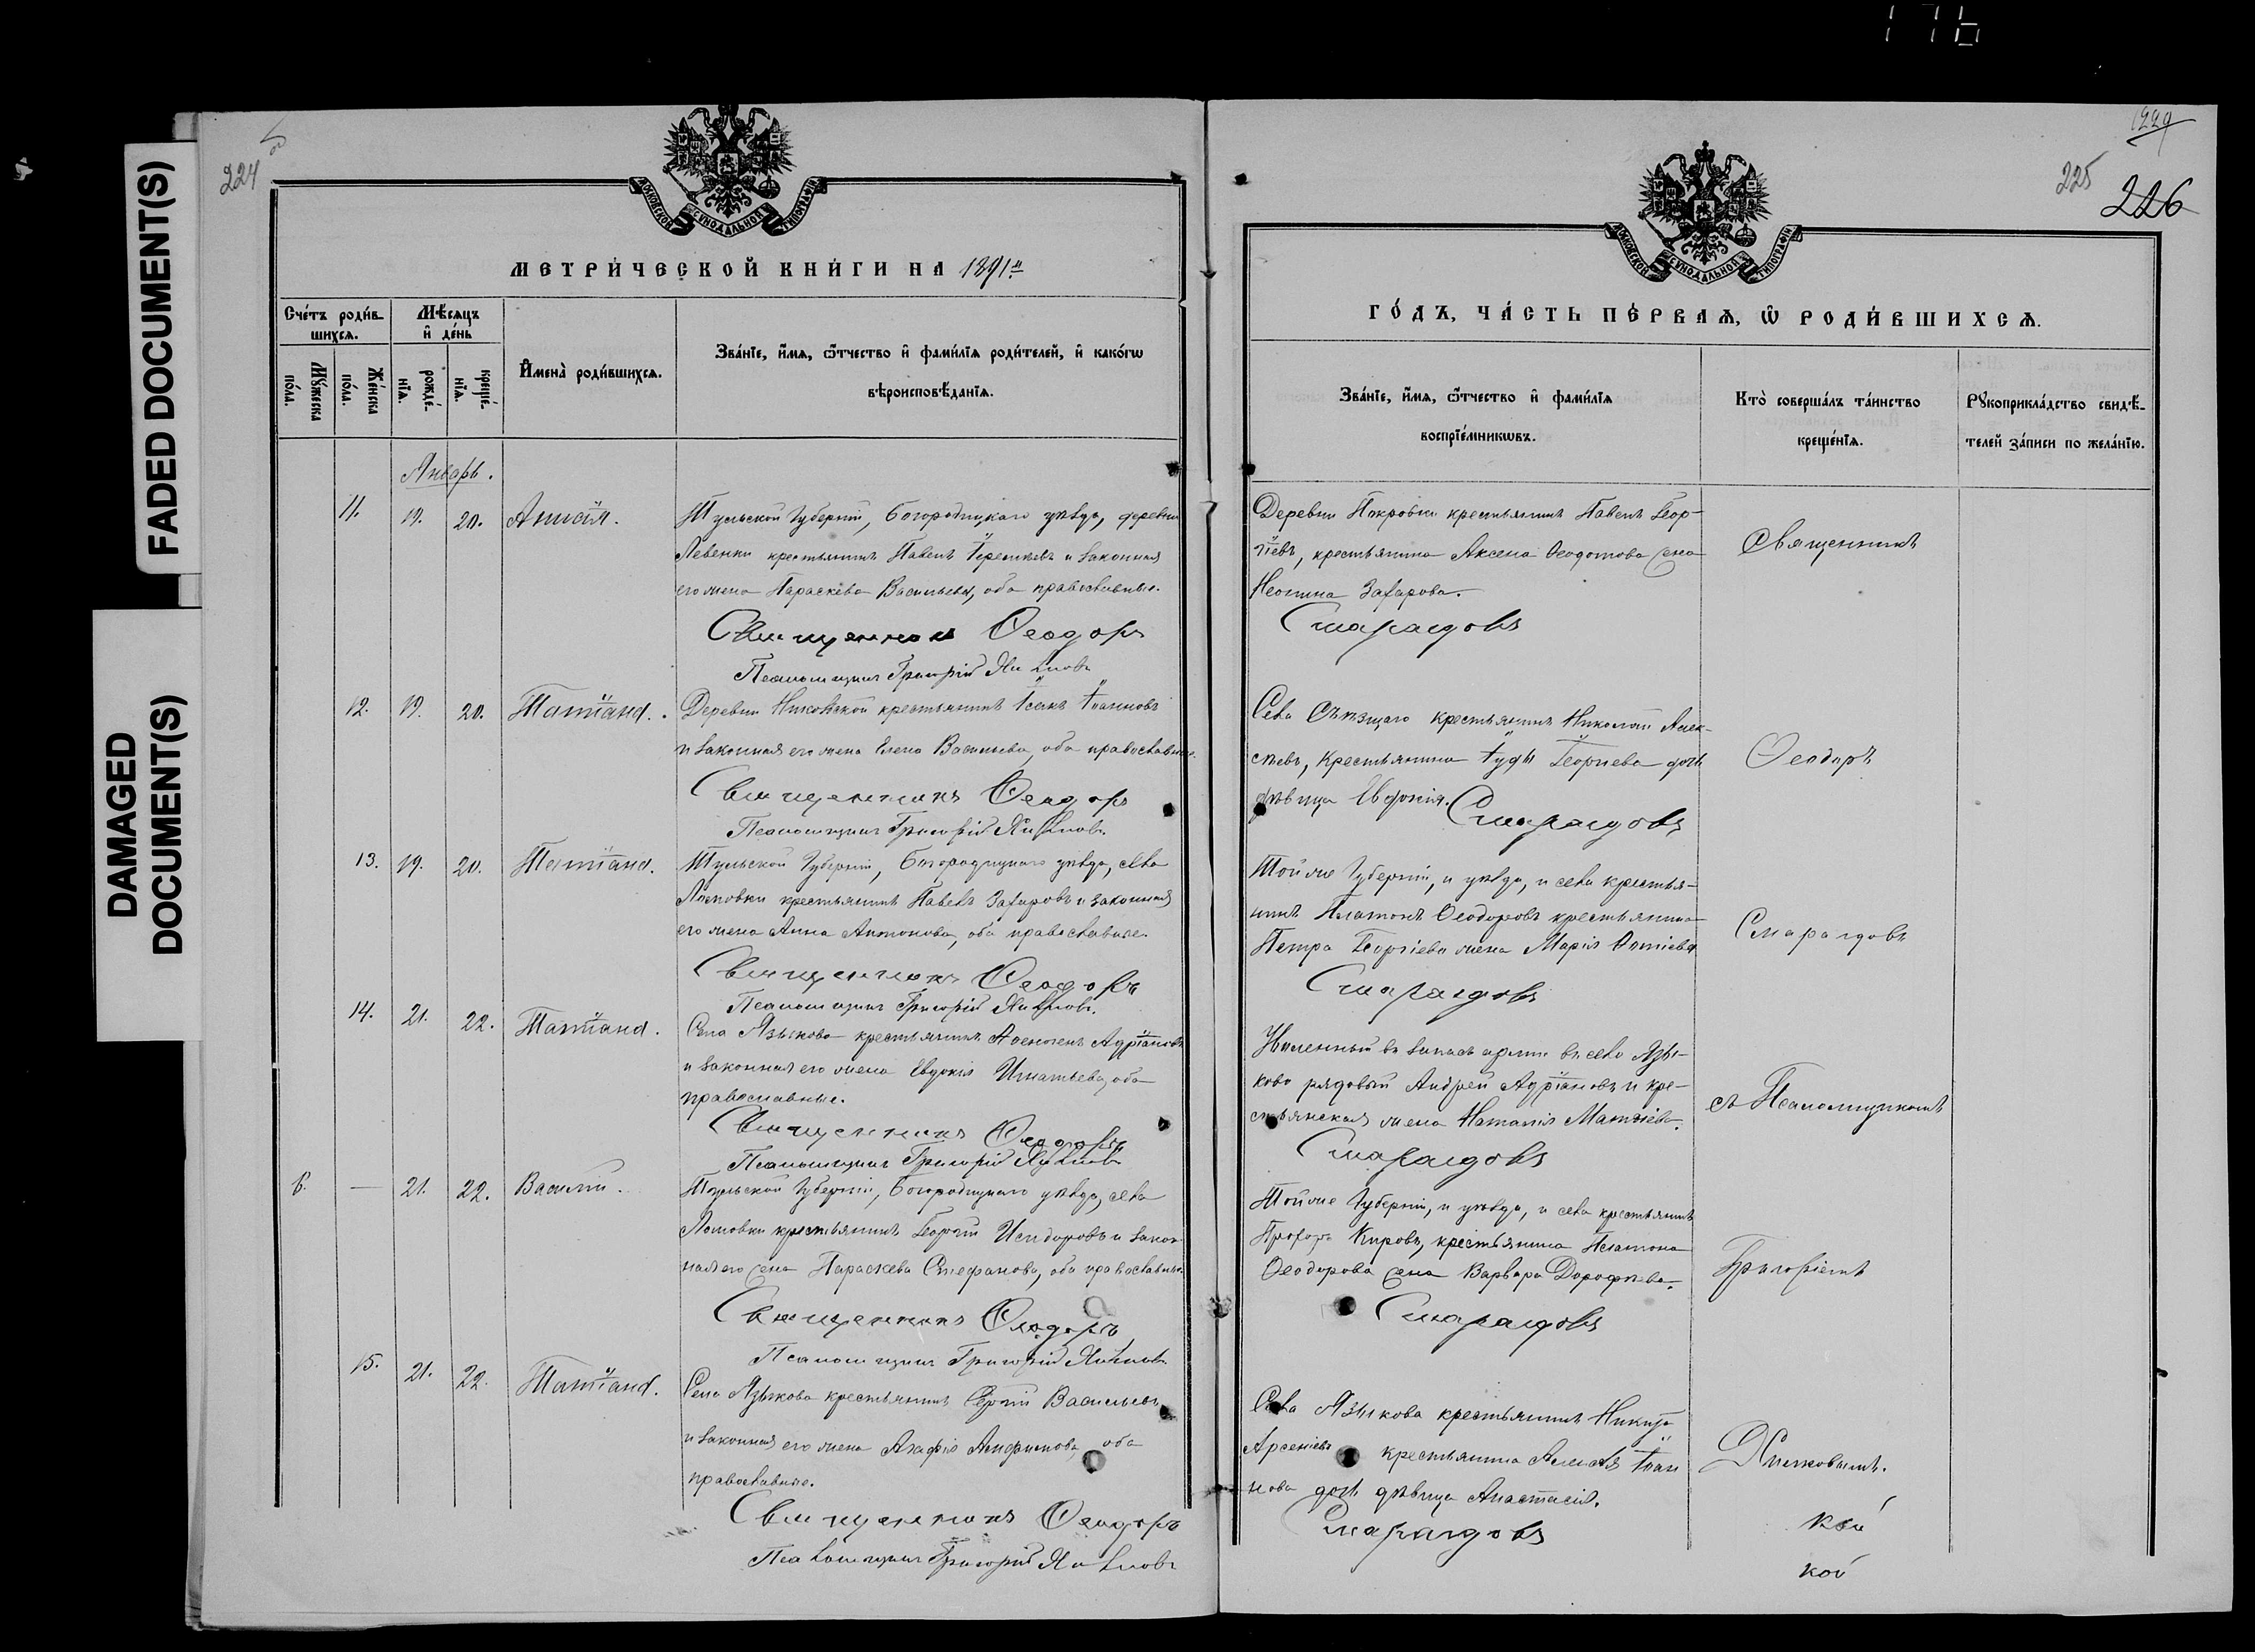 176
FADED DOCUMENT(S)
DAMAGED
DOCUMENT(S)
224
МОСКОВСКОЙ СѴНОДАЛЬНОЙ ТИПОГРАФІИ
МЕТРИ́ЧЕСКОЙ КНИ́ГИ НА 1891й
Сче́тъ роди́в-
шихсѧ.
Мѣ́сѧцъ
и҆ де́нь
Мꙋ́жеска
по́ла.
Же́нска
по́ла.
рожде́-
нїѧ.
креще́-
нїѧ.
И҆мена̀ роди́вшихсѧ.
Зва́нїе, и҆́мѧ, ѻ҆́тчество и҆ фами́лїѧ роди́телей, и҆ како́гѡ
вѣроисповѣ́данїѧ.
Январь.
11. 19. 20. Анисія.
Тульской Губерніи, Богородицкаго уѣзда, деревни
Левенки крестьянинъ Павелъ Іеремѣевъ и законная
его жена Параскева Васильева, оба православные.
Священникъ Ѳеодоръ
Псаломщикъ Григорій
12. 19. 20. Татіана.
Деревни крестьянинъ Ісаакъ Іоанновъ
и законная его жена Елена Васильева, оба православные.
Священникъ Ѳеодоръ
Псаломщикъ Григорій
13. 19. 20. Татіана.
Тульской Губерніи, Богородицкаго уѣзда, села
крестьянинъ Павелъ Захаровъ и законная
его жена Анна Антонова, оба православные.
Священникъ Ѳеодоръ
Псаломщикъ Григорій
14. 21. 22. Татіана.
Села Языкова крестьянинъ Адріановъ
и законная его жена Евдокія Игнатьева, оба
православные.
Священникъ Ѳеодоръ
Псаломщикъ Григорій
6. — 21. 22. Василій.
Тульской Губерніи, Богородицкаго уѣзда, села
крестьянинъ Георгій Исидоровъ и закон-
ная его жена Параскева Стефанова, оба православные.
Священникъ Ѳеодоръ
Псаломщикъ Григорій
15. 21. 22. Татіана.
Села Языкова крестьянинъ Сергій Васильевъ
и законная его жена Агафія Анфимова, оба
православные.
Священникъ Ѳеодоръ
Псаломщикъ Григорій
1229
225
226
МОСКОВСКОЙ СѴНОДАЛЬНОЙ ТИПОГРАФІИ
ГО́ДЪ, ЧА́СТЬ ПЕ́РВАѦ, Ѡ҆ РОДИ́ВШИХСѦ.
Зва́нїе, и҆́мѧ, ѻ҆́тчество и҆ фами́лїѧ
воспрїе́мникѡвъ.
Кто̀ соверша́лъ та́инство
креще́нїѧ.
Рꙋкоприкла́дство свидѣ́-
телей за́писи по жела́нїю.
Деревни Покровки крестьянинъ Павелъ Геор-
гіевъ, крестьянина Аксена Ѳеодотова жена
Неонила Захарова.
Смарагдовъ
Священникъ
Села крестьянинъ Николай Алек-
сѣевъ, крестьянина Іуды Георгіева дочь
дѣвица Евфимія.
Смарагдовъ
Ѳеодоръ
Той же Губерніи, и уѣзда, и села крестья-
нинъ Платонъ Ѳеодоровъ крестьянина
Петра Георгіева жена Марія
Смарагдовъ
Смарагдовъ
Уволенный въ запасъ арміи въ село Язы-
ково рядовый Андрей Адріановъ и кре-
стьянская жена Наталія Матвѣева.
Смарагдовъ
съ Псаломщикомъ
Той же Губерніи, и уѣзда, и села крестьянинъ
Прохоръ Кировъ, крестьянина Платона
Ѳеодорова жена Варвара Дороѳеева.
Смарагдовъ
Григоріемъ
Села Языкова крестьянинъ Никита
Арсеніевъ крестьянина Алексѣя Іоан-
нова дочь дѣвица Анастасія.
Смарагдовъ